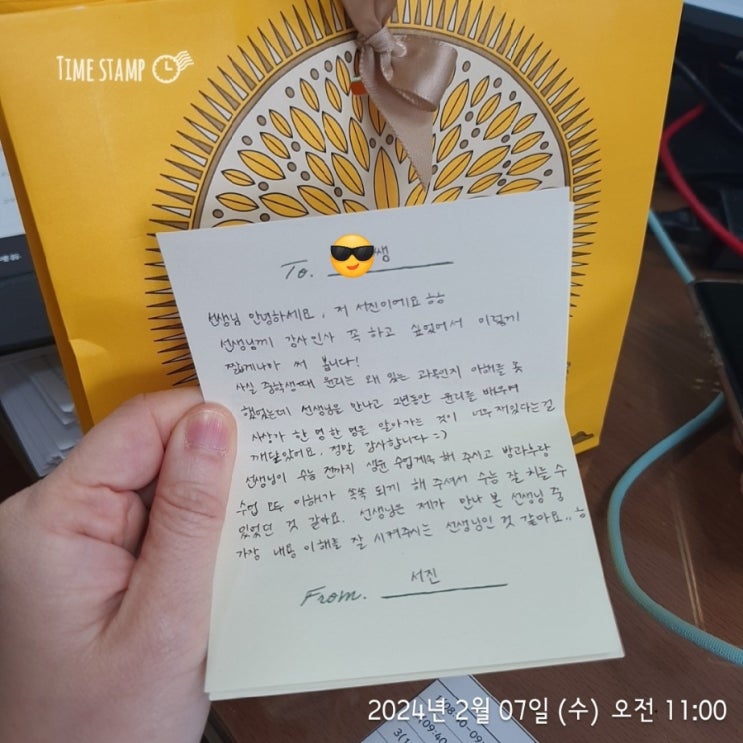 TIME STAMP
To. 쌤
선생님 안녕하세요, 저 서진이에요 ㅎㅎ
선생님께 감사인사 꼭 하고 싶었어서 이렇게
짧게나마 써 봅니다!
사실 중학생때 윤리는 왜 있는 과목인지 이해를 못
했었는데 선생님을 만나고 2년동안 윤리를 배우며
사상가 한 명 한 명을 알아가는 것이 너무 재밌다는걸
깨달았어요. 정말 감사합니다 :)
선생님이 수능 전까지 생윤 수업계속 해 주시고 방과후랑
수업 모두 이해가 쏙쏙 되기 해 주셔서 수능 잘 치를 수
있었던 것 같아요. 선생님은 제가 만나 본 선생님 중
가장 내용 이해를 잘 시켜주시는 선생님인 것 같아요.. ㅎ
From. 서진
2024년 2월 07일 (수) 오전 11:00